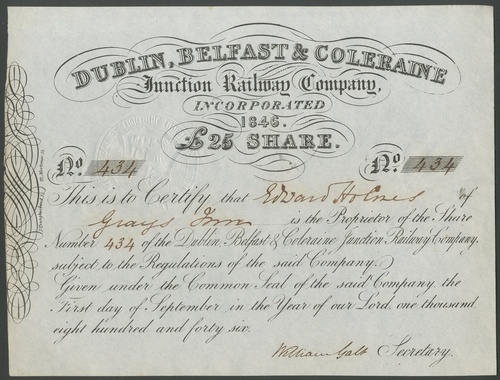 DUBLIN, BELFAST & COLERAINE
Junction Railway Company,
INCORPORATED
1846.
£25 SHARE.
No. 434 No. 434
This is to Certify that Edward Holmes of
Grays Inn is the Proprietor of the Share
Number 434 of the Dublin, Belfast & Coleraine Junction Railway Company,
subject to the Regulations of the said Company.
Given under the Common Seal of the said Company, the
First day of September in the Year of our Lord, one thousand
eight hundred and forty six.
William Galt Secretary.